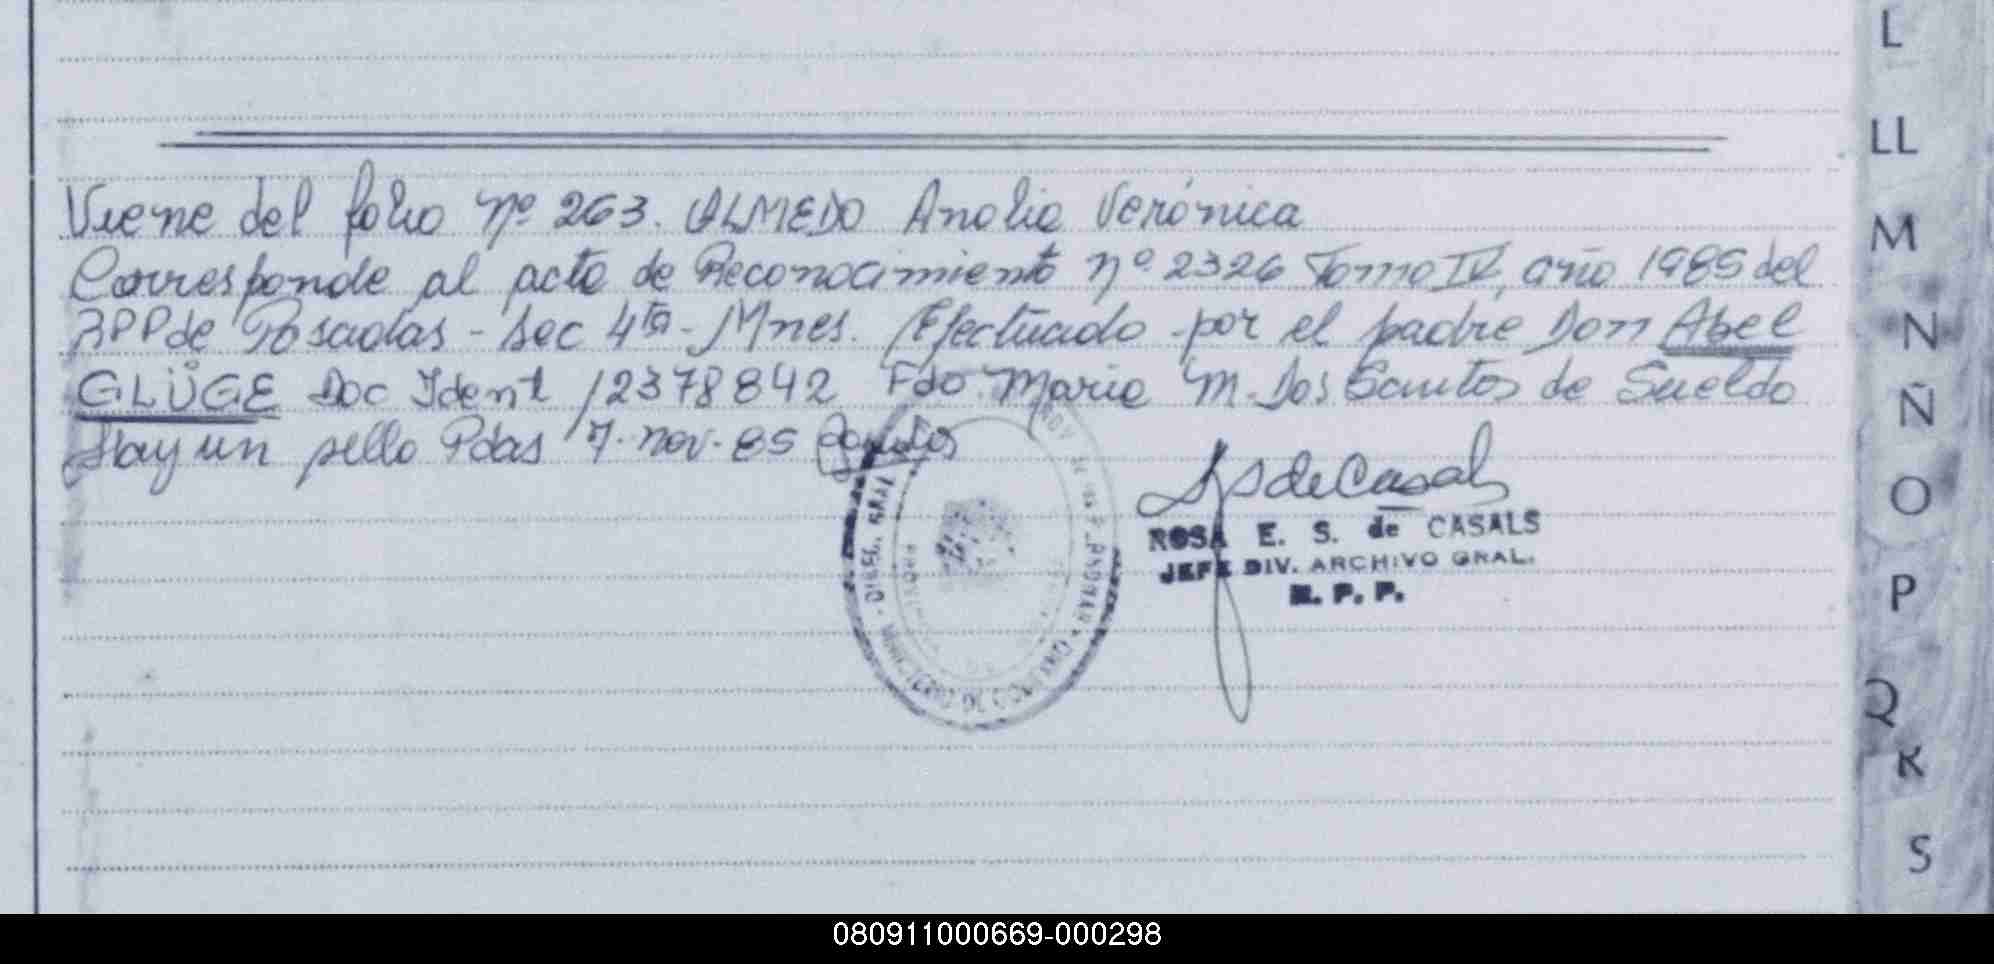 Viene del folio nº 263. ALMEDO Analia Verónica
Corresponde al acta de Reconocimiento nº 2326 Tomo IV, año 1985 del
RPP de Posadas - Sec 4ta - Mnes. Efectuado por el padre Don Abel
GLÜGE Doc Ident 12378842 Fdo. Maria M. Dos Santos de Sueldo
Hay un sello Pdas 7-nov-85
ROSA E. S. de CASALS
JEFE DIV. ARCHIVO GRAL.
R. P. P.
L
LL
M
N
Ñ
O
P
Q
R
S
080911000669-000298